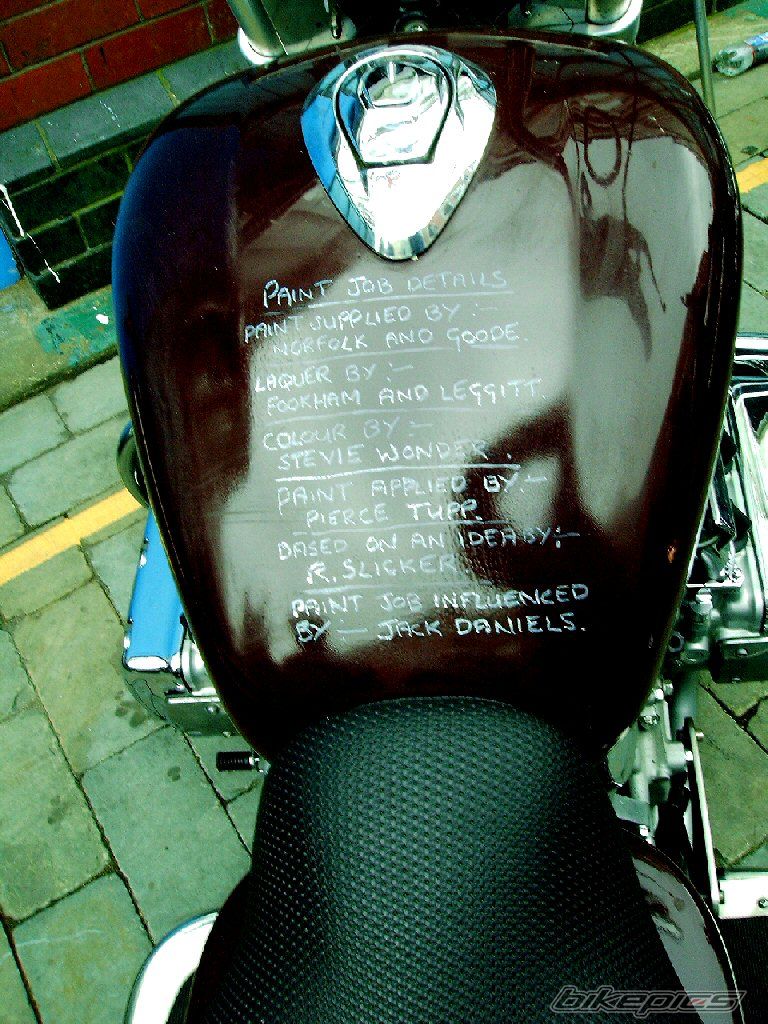 PAINT JOB DETAILS
PAINT SUPPLIED BY :-
NORFOLK AND GOODE.
LAQUER BY :-
FOOKHAM AND LEGGITT.
COLOUR BY :-
STEVIE WONDER.
PAINT APPLIED BY :-
PIERCE TUPP.
BASED ON AN IDEA BY :-
R. SLICKER
PAINT JOB INFLUENCED
BY :- JACK DANIELS.
bikepics